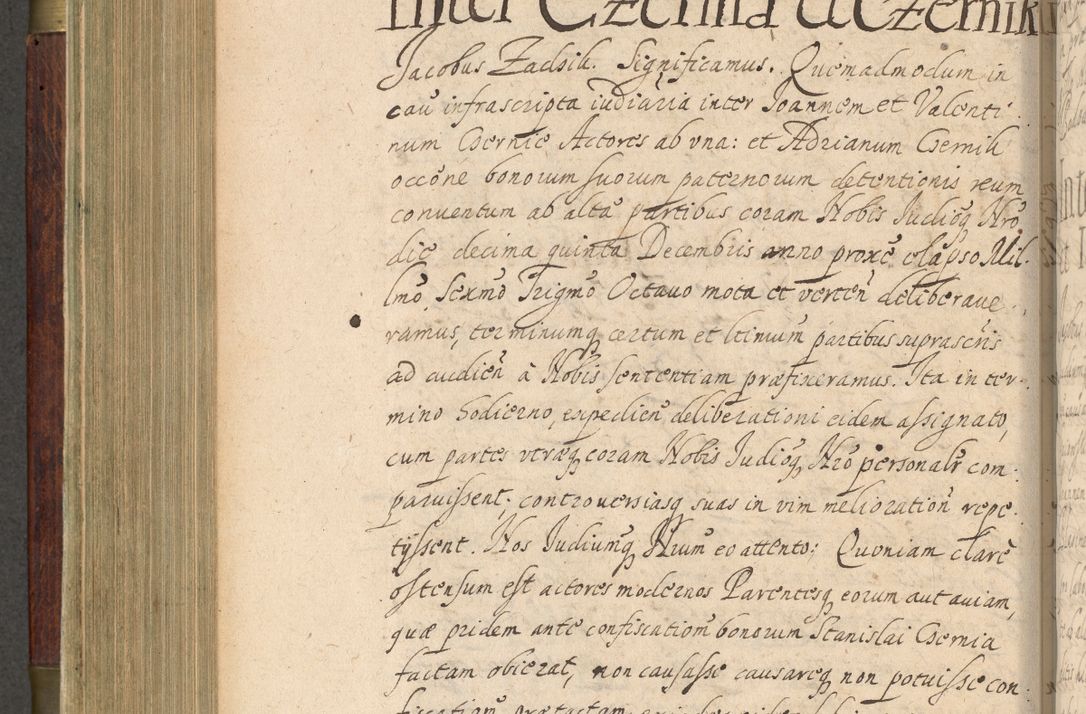 Inter Czernia et Czernik
Jacobus Zadzik. Significamus. Quemadmodum in
cau infrascripta iudiaria inter Joannem et Valenti
num Czernie Actores ab una: et Adrianum Czernik
occone bonorum suorum paternorum detentionis reum
conuentum ab alta partibus coram Nobis Judioq Nro
die decima quinta Decembris anno proxe elapso Mil-
lmo Sexmo Trigmo Octauo mota et verten deliberaue
ramus, terminumq certum et ltimum partibus suprascris
ad audien à Nobis sententiam præfixeramus. Ita in ter-
mino hodierno, expedien deliberationi eidem assignato,
cum partes utræq coram Nobis Judioq Nro personalr com-
paruissent. controuersiasq suas in vim melioration repe-
tijssent. Nos Judiumq Nrum eo attento; Quoniam clare
ostensum est actores modernos Parentesq eorum aut auiam,
quæ pridem ante confiscatiom bonorum Stanislai Czernia
factam obierat, non causasse causareq non potuisse con-